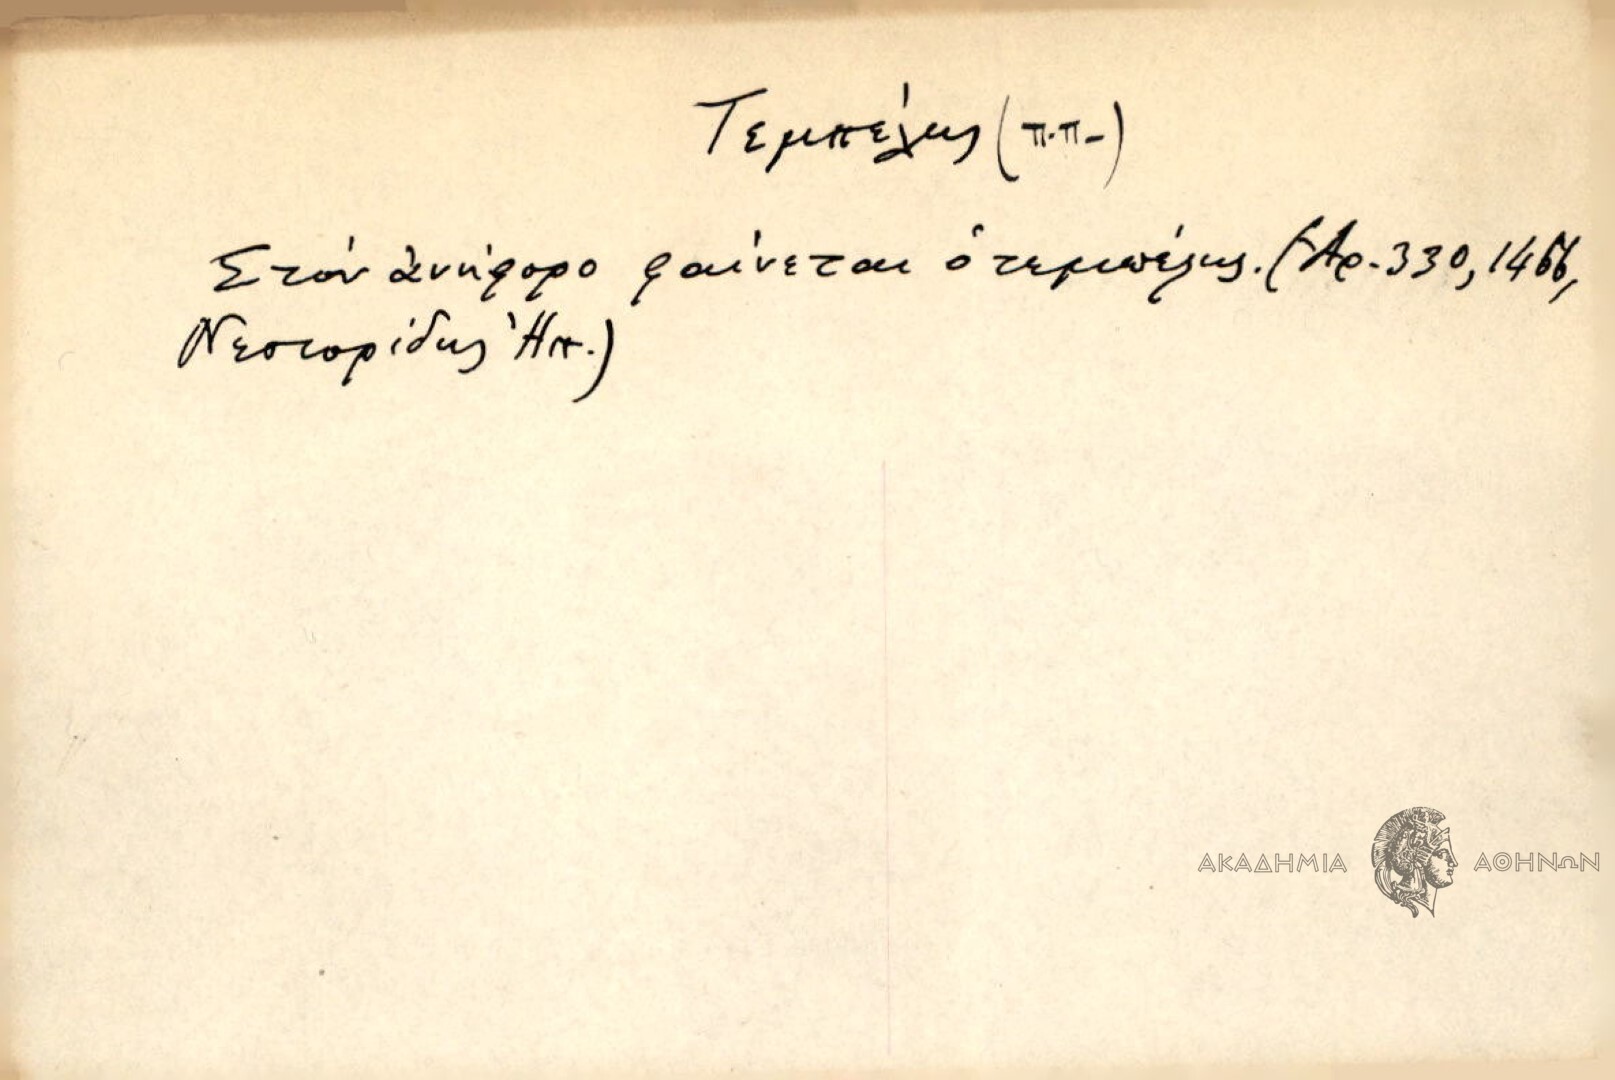 Τεμπέλης (π.π.)
Στόν ἀνήφορο φαίνεται ὁ τεμπέλης. (Ἀρ. 330, 1466,
Νεστορίδης Ἠπ.)
ΑΚΑΔΗΜΙΑ ΑΘΗΝΩΝ